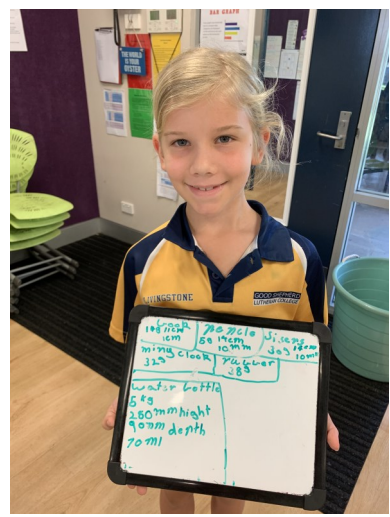 BAR GRAPH
THE WORLD
IS YOUR
OYSTER
LIVINGSTONE
GOOD SHEPHERD
LUTHERAN COLLEGE
book
11cm
1cm
pencle
5g 14cm
10mm
30g
10ml
miny clock
32g
rubber
38g
water bottle
5kg
250mm hight
90mm depth
70ml